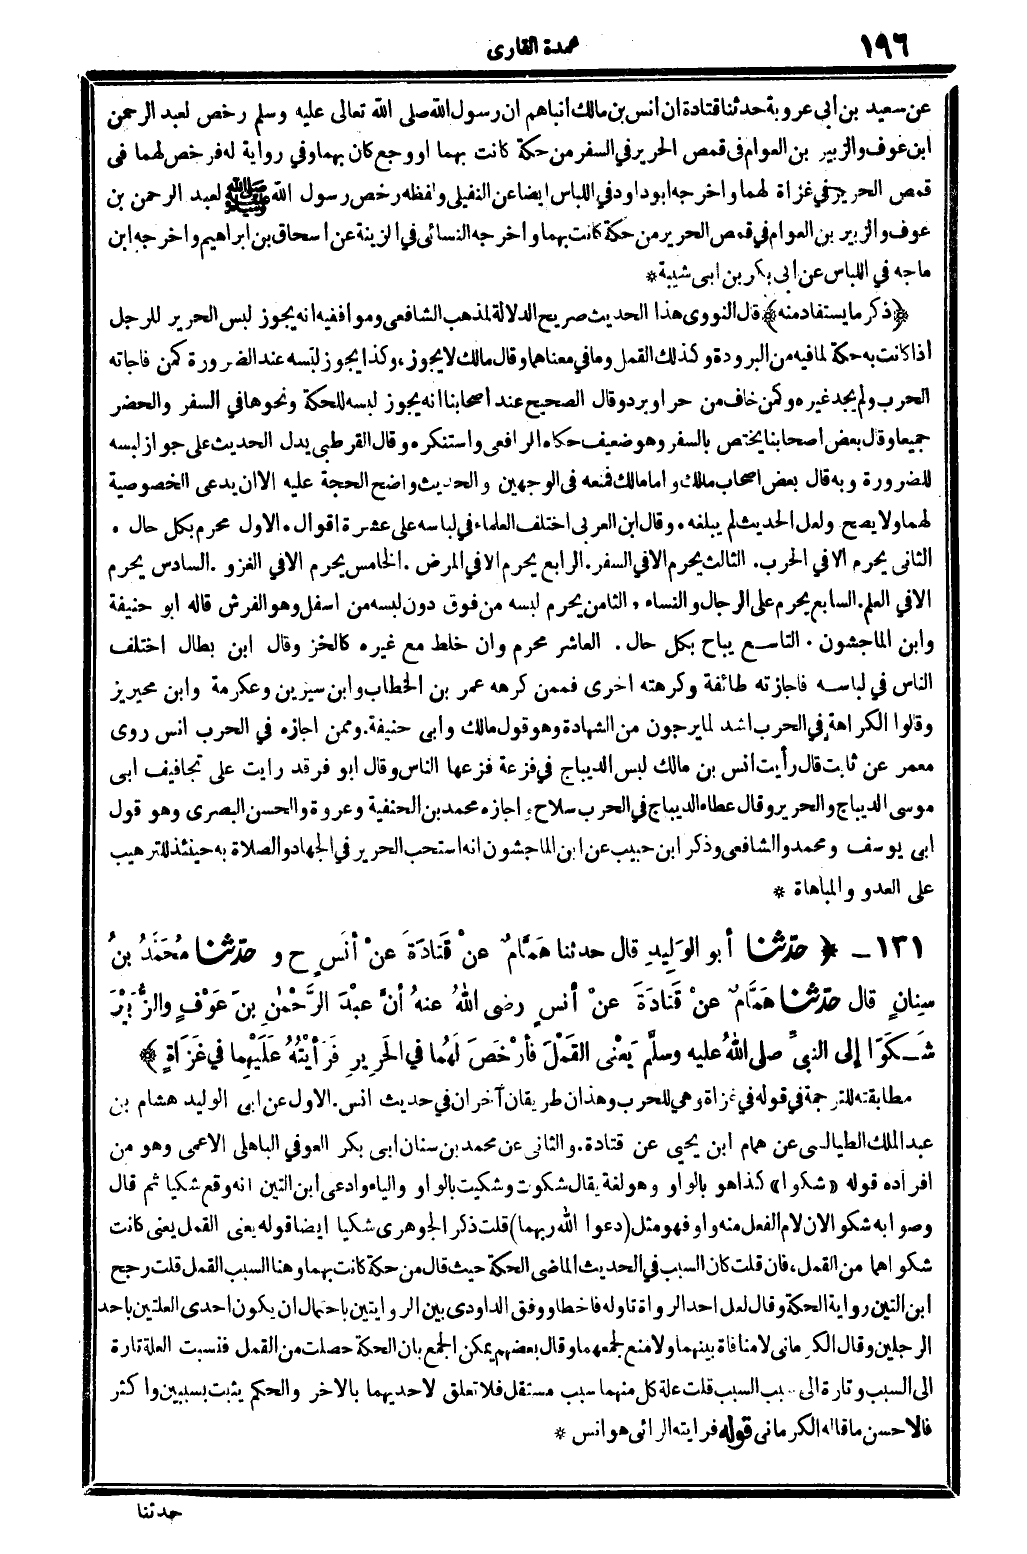 ١٩٦
عمدة القارى
عن سعيد بن أبي عروبة حدثنا قتادة ان أنس بن مالك أنباهم ان رسول الله صلى الله تعالى عليه وسلم رخص لعبد الرحمن
ابن عوف والزبير بن العوام فى قمص الحرير في السفر من حكة كانت بهما او وجع كان بهما وفي رواية له فرخص لهما فى
قمص الحرير في غزاة لهما واخرجه ابوداود في اللباس ايضا عن النفيلى ولفظه رخص رسول الله ﷺ لعبد الرحمن بن
عوف والزبير بن العوام في قمص الحرير من حكة كانت بهما وأخرجه النسائى في الزينة عن اسحاق بن ابراهيم واخرجه ابن
ماجه في اللباس عن ابى بكر بن ابى شيبة *
﴿ذكر ما يستفاد منه﴾ قال النووى هذا الحديث صريح الدلالة لمذهب الشافعى وموافقيه انه يجوز لبس الحرير للرجل
أذا كانت به حكة لما فيه من البرودة وكذلك القمل وما في معناهما وقال مالك لا يجوز، وكذا يجوز لبسه عند الضرورة كمن فاجأته
الحرب ولم يجد غيره وكمن خاف من حر او برد وقال الصحيح عند أصحابنا انه يجوز لبسه للحكة ونحوها في السفر والحضر
جميعا وقال بعض اصحابنا يختص بالسفر وهو ضعيف حكاه الرافعى واستنكره وقال القرطبى يدل الحديث على جواز لبسه
للضرورة وبه قال بعض اصحاب مالك واما مالك فمنعه فى الوجهين والحديث واضح الحجة عليه الا ان يدعى الخصوصية
لهما ولا يصح ولعل الحديث لم يبلغه. وقال ابن العربى اختلف العلماء في لباسه على عشرة اقوال. الاول محرم بكل حال .
الثانى يحرم الا في الحرب. الثالث يحرم الا فى السفر. الرابع يحرم الا في المرض .الخامس يحرم الا في الغزو .السادس يحرم
الا في العلم. السابع يحرم على الرجال والنساء . الثامن يحرم لبسه من فوق دون لبسه من اسفل وهو الفرش قاله ابو حنيفة
وابن الماجشون . التاسع يباح بكل حال . العاشر محرم وان خلط مع غيره كالخز وقال ابن بطال اختلف
الناس في لباسه فاجازته طائفة وكرهته اخرى فممن كرهه عمر بن الخطاب وابن سيرين وعكرمة وابن محيريز
وقالوا الكراهة في الحرب اشد لما يرجون من الشهادة وهو قول مالك وابى حنيفة. وممن اجازه في الحرب انس روى
معمر عن ثابت قال رأيت أنس بن مالك لبس الديباج في فزعة فزعها الناس وقال ابو فرقد رايت على تجافيف ابى
موسى الديباج والحرير وقال عطاء الديباج في الحرب سلاح، اجازه محمد بن الحنفية وعروة والحسن البصرى وهو قول
ابى يوسف ومحمد والشافعى وذكر ابن حبيب عن ابن الماجشون انه استحب الحرير في الجهاد والصلاة به حينئذ للترهيب
على العدو والمباهاة *
١٣١ ــ ﴿ حدّثنا أبو الوَلِيدِ قال حدثنا هَمَّامٌ عنْ قَتادَةَ عنْ أنَسٍ ح و حدّثنا مُحَمَّدُ بنُ
سِنانٍ قال حدّثنا هَمَّامٌ عنْ قَتادَةَ عنْ أنسٍ رضى اللهُ عنهُ أنَّ عبْدَ الرَّحْمٰنِ بنَ عَوْفٍ والزُّبَيْرَ
شَكَوَا إلى النبيِّ صلى اللهُ عليه وسلَّم يَعْنى القَمْلَ فأرْخَصَ لَهُما في الحَرِيرِ فَرَأيْتُهُ عَلَيْهِما في غَزَاةٍ ﴾
مطابقته للترجمة في قوله في غزاة وهي للحرب وهذان طريقان آخران في حديث انس. الاول عن ابى الوليد هشام بن
عبد الملك الطيالسى عن همام ابن يحيى عن قتادة. والثانى عن محمد بن سنان ابى بكر العوفي الباهلى الاعمى وهو من
افراده قوله «شكوا» كذا هو بالواو وهو لغة يقال شكوت وشكيت بالواو والياء وادعى ابن التين انه وقع شكيا ثم قال
وصوابه شكوا لان لام الفعل منه واو فهو مثل (دعوا الله ربهما) قلت ذكر الجوهرى شكيا ايضا قوله يعنى القمل يعنى كانت
شكواهما من القمل، فان قلت كان السبب في الحديث الماضى الحكة حيث قال من حكة كانت بهما وهنا السبب القمل قلت رجح
ابن التين رواية الحكة وقال لعل احد الرواة تاوله فاخطا ووفق الداودى بين الروايتين باحتمال ان يكون احدى العلتين باحد
الرجلين وقال الكرمانى لا منافاة بينهما ولا منع لجمعهما وقال بعضهم يمكن الجمع بان الحكة حصلت من القمل فنسبت العلة تارة
الى السبب وتارة الى سبب السبب قلت علة كل منهما سبب مستقل فلا تعلق لاحديهما بالاخر والحكم يثبت بسببين واكثر
فالاحسن ما قاله الكرمانى قوله فرايته الرائى هو انس *
حدثنا